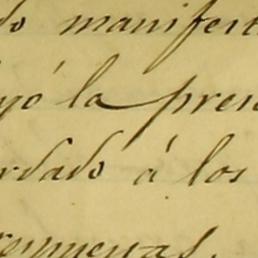 do manifest
yó la pren
rdado á los